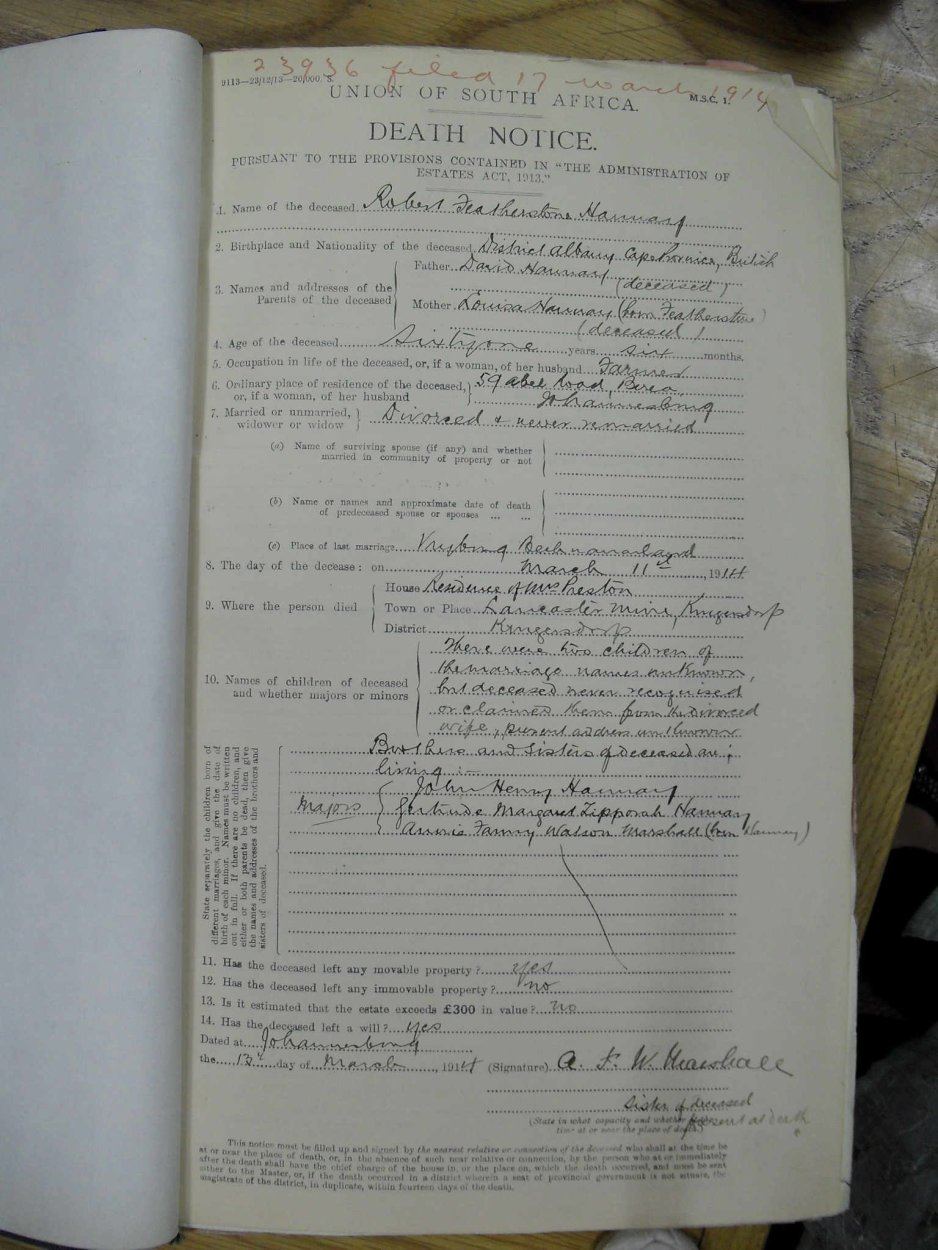 23936 filed 17 March 1914
9113—23/12/13—20,000. S.
UNION OF SOUTH AFRICA.
M.S.C. 1.
DEATH NOTICE.
PURSUANT TO THE PROVISIONS CONTAINED IN "THE ADMINISTRATION OF
ESTATES ACT, 1913."
1. Name of the deceased Robert Featherstone Hannay
2. Birthplace and Nationality of the deceased District Albany Cape Province, British
3. Names and addresses of the Parents of the deceased
Father David Hannay
(deceased)
Mother Louisa Hannay (born Featherstone)
(deceased)
4. Age of the deceased Sixty one years six months.
5. Occupation in life of the deceased, or, if a woman, of her husband Farmer
6. Ordinary place of residence of the deceased, or, if a woman, of her husband
59 Abel Road, Berea,
Johannesburg
7. Married or unmarried, widower or widow
Divorced & never remarried
(a) Name of surviving spouse (if any) and whether
married in community of property or not
(b) Name or names and approximate date of death
of predeceased spouse or spouses ... ...
(c) Place of last marriage Vryburg Bechuanaland
8. The day of the decease: on March 11th, 1914
9. Where the person died
House Residence of Mrs Preston
Town or Place Lancaster Mine, Krugersdorp
District Krugersdorp
10. Names of children of deceased
and whether majors or minors
There were two children of
the marriage names unknown,
but deceased never recognised
or claimed them from the divorced
wife, present address unknown
State separately the children born of
different marriages, and give the date of
birth of each minor. Names must be written
out in full. If there are no children, and
either or both parents be dead, then give
the names and addresses of the brothers and
sisters of deceased.
Brothers and Sisters of deceased are;
living :—
John Henry Hannay
Majors Gertrude Margaret Zipporah Hannay
Annie Fanny Watson Marshall (born Hannay)
11. Has the deceased left any movable property? yes
12. Has the deceased left any immovable property? no
13. Is it estimated that the estate exceeds £300 in value? no
14. Has the deceased left a will? yes
Dated at Johannesburg
the 13th day of March, 1914 (Signature) A. F. W. Marshall
Sister of deceased
present at death
(State in what capacity and whether
time at or near the place of death.)
This notice must be filled up and signed by the nearest relative or connection of the deceased who shall at the time be
at or near the place of death, or, in the absence of such near relative or connection, by the person who at or immediately
after the death shall have the chief charge of the house in, or the place on, which the death occurred, and must be sent
either to the Master, or, if the death occurred in a district wherein a seat of provincial government is not situate, the
magistrate of the district, in duplicate, within fourteen days of the death.